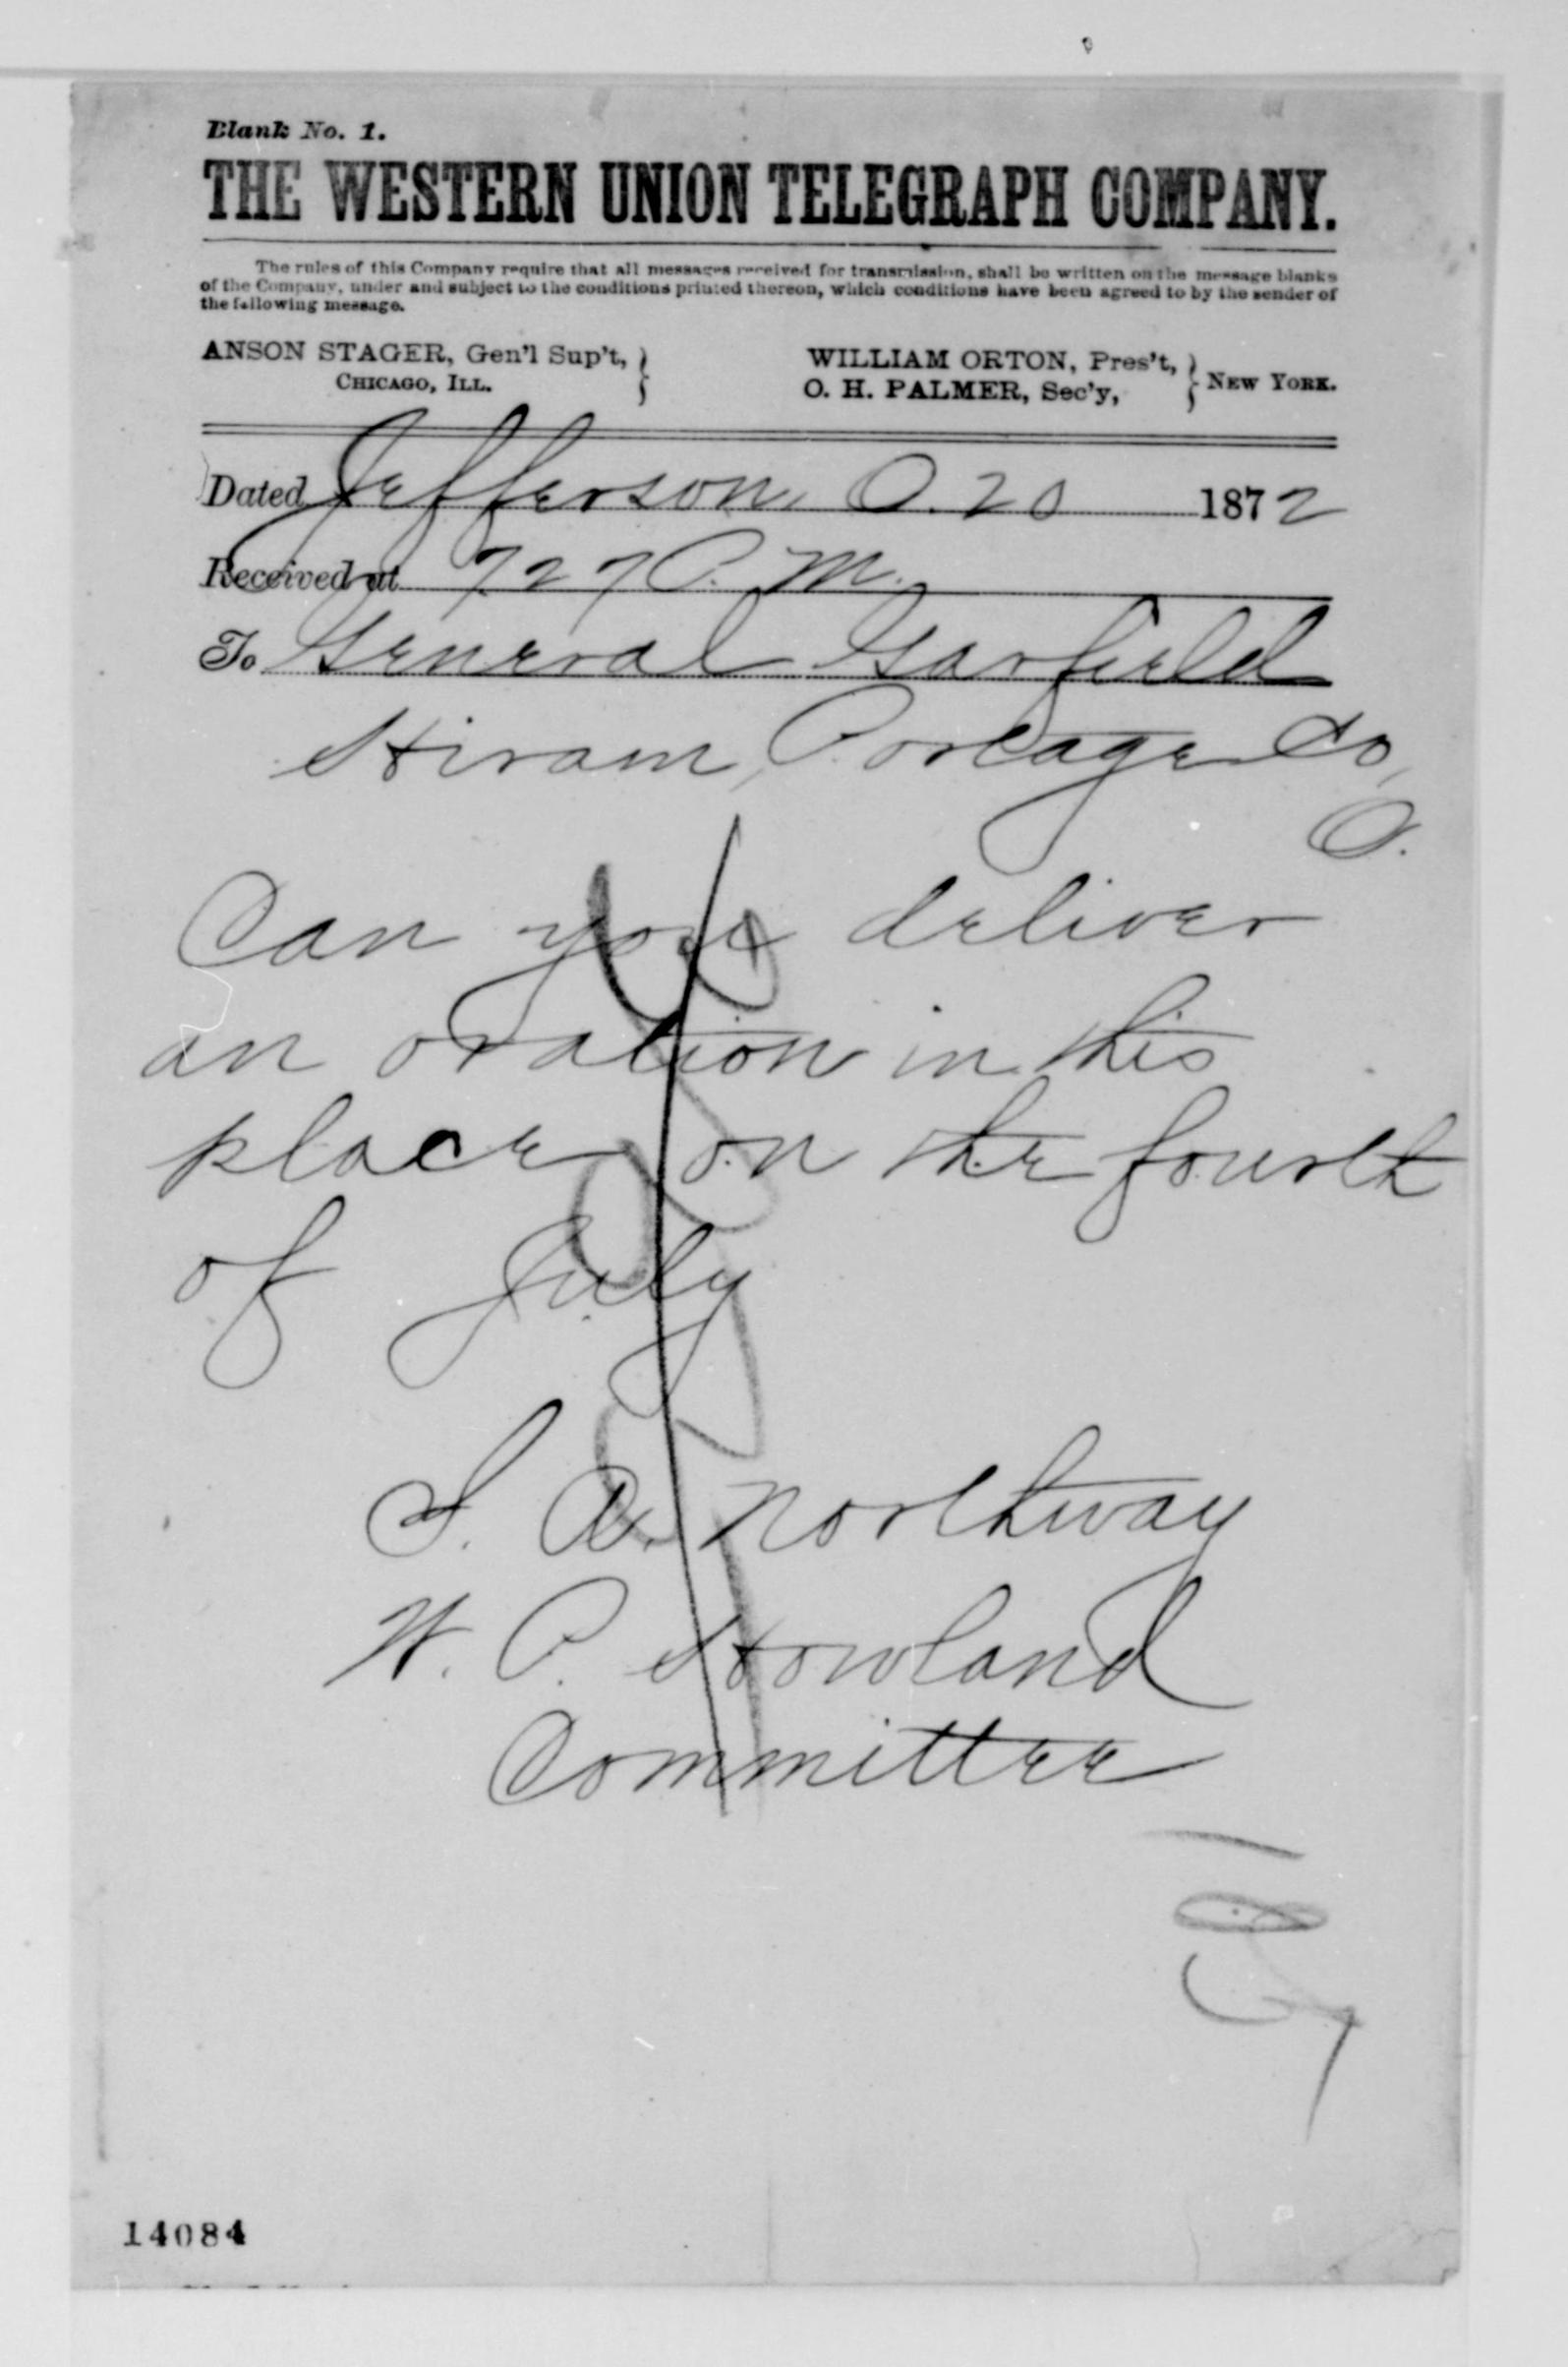 Blank No. 1.
THE WESTERN UNION TELEGRAPH COMPANY.
The rules of this Company require that all messages received for transmission, shall be written on the message blanks
of the Company, under and subject to the conditions printed thereon, which conditions have been agreed to by the sender of
the following message.
ANSON STAGER, Gen'l Sup't,
CHICAGO, ILL.
WILLIAM ORTON, Pres't,
O. H. PALMER, Sec'y,
NEW YORK.
Dated Jefferson, O. 20 1872
Received at 7.27 P. M.
To General Garfield
Hiram, Portage Co,
O.
Can you deliver
an oration in this
place on the fourth
of July
S. A. Northway
W. P. Howland
Committee
14084